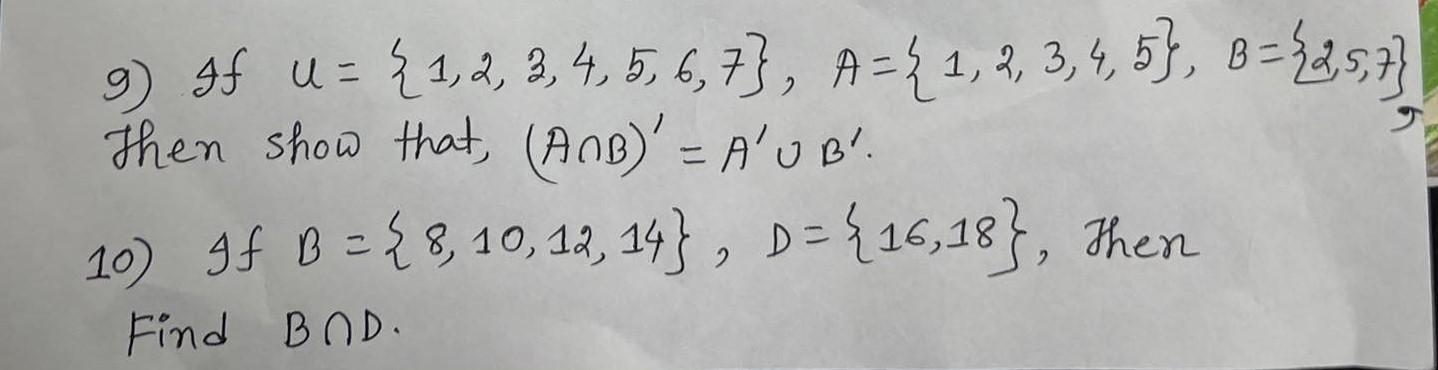 9) If U = {1, 2, 3, 4, 5, 6, 7}, A = {1, 2, 3, 4, 5}, B = {2, 5, 7},
Then show that, (A∩B)' = A' ∪ B'.
10) If B = {8, 10, 12, 14}, D = {16, 18}, Then
Find B∩D.